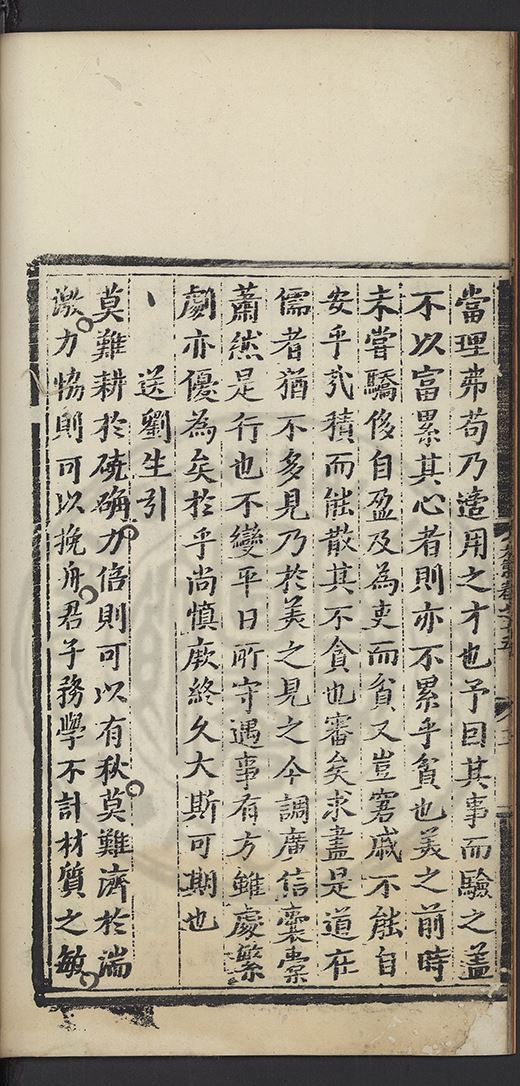 當理弗苟乃適用之才也予因其事而驗之蓋
不以富累其心者則亦不累乎貧也美之前時
未嘗驕侈自盈及為吏而貧又豈窘戚不能自
安乎哉積而能散其不貪也審矣求盡是道在
儒者猶不多見乃於美之見之今調廣信囊橐
蕭然是行也不變平日所守遇事有方雖處繁
劇亦優為矣於乎尚慎厥終久大斯可期也
送劉生引
莫難耕於磽确力倍則可以有秋莫難濟於湍
激力恊則可以挽舟君子務學不計材質之敏